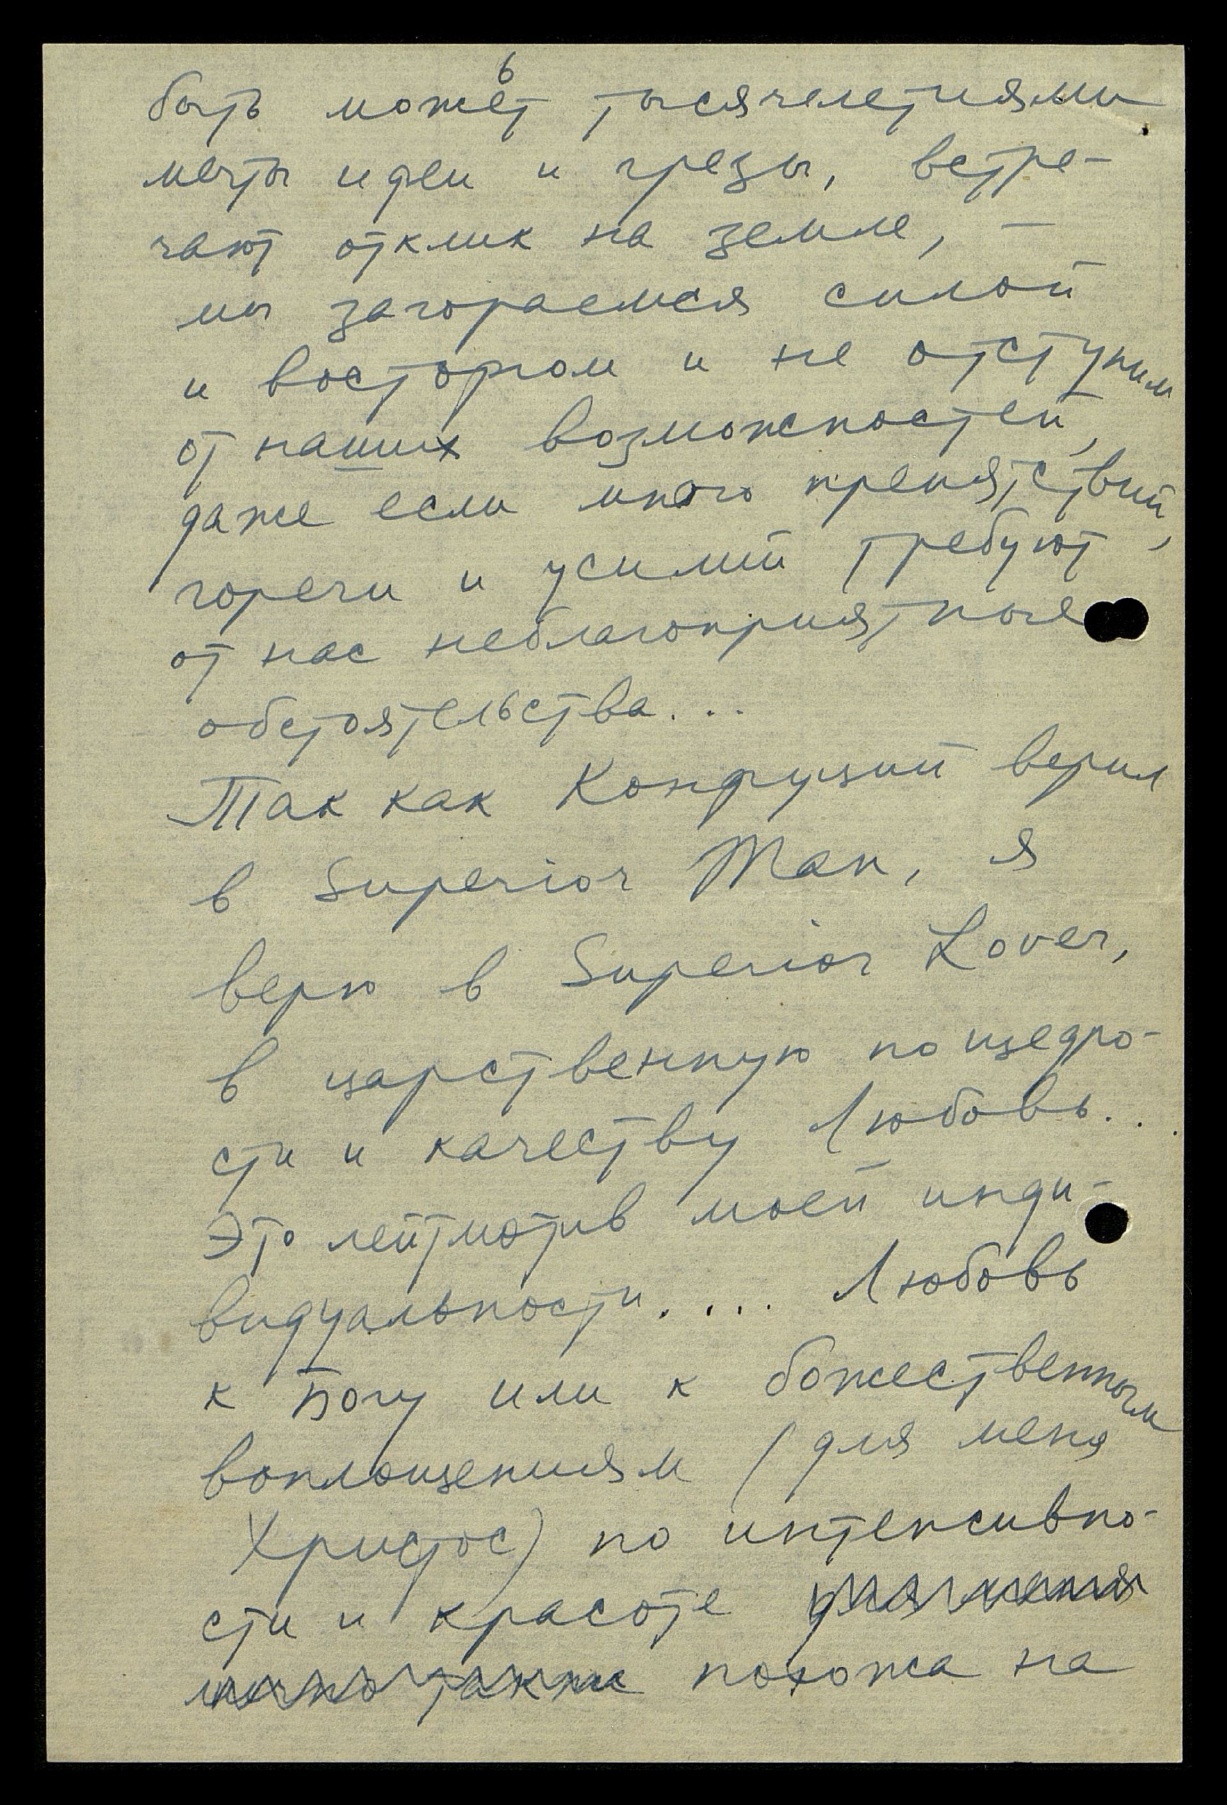 6
быть может тысячелетиями
мечты идеи и грезы, встре-
чают отклик на земле, —
мы загораемся силой
и восторгом и не отступим
от наших возможностей,
даже если много препятствий,
горечи и усилий требуют
от нас неблагоприятные
обстоятельства...
Так как Конфуций верил
в Superior Man, я
верю в Superior Lover,
в царственную по щедро-
сти и качеству Любовь...
Это лейтмотив моей инди-
видуальности.... Любовь
к Богу или к божественным
воплощениям (для меня
Христос) по интенсивно-
сти и красоте для меня
лично также похожа на